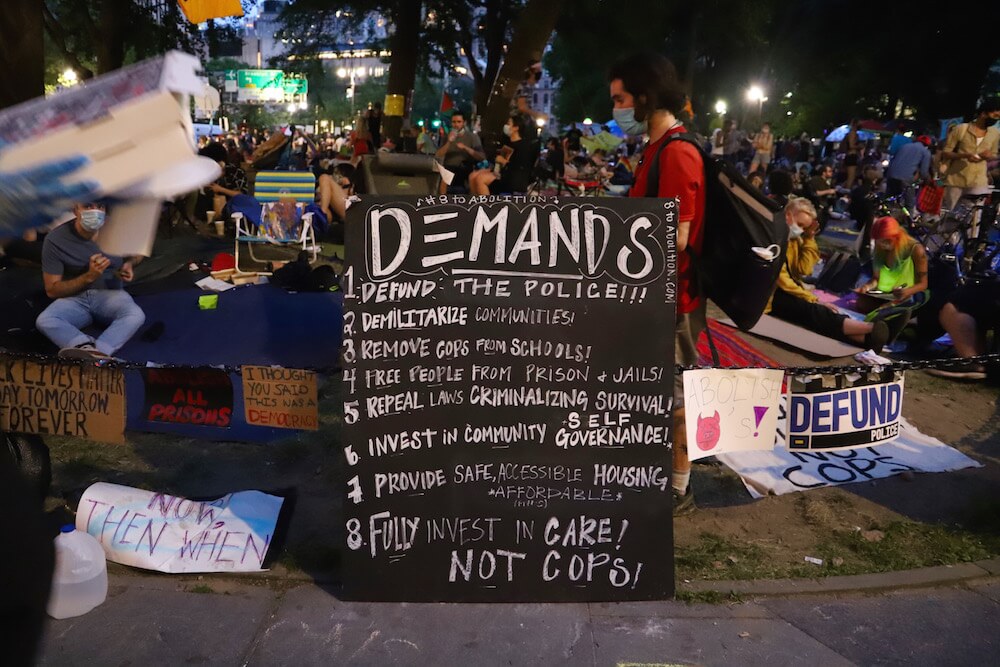 #8 to ABOLITION
DEMANDS
8 to ABOLITION.COM
1. DEFUND THE POLICE!!!
2. DEMILITARIZE COMMUNITIES!
3 REMOVE COPS FROM SCHOOLS!
4 FREE PEOPLE FROM PRISON & JAILS!
5. REPEAL LAWS CRIMINALIZING SURVIVAL!
6. INVEST IN COMMUNITY SELF
GOVERNANCE!
7. PROVIDE SAFE, ACCESSIBLE HOUSING
*AFFORDABLE*
8. FULLY INVEST IN CARE!
NOT COPS!
LIVES MATTER
TOMORROW
FOREVER
ALL
PRISONS
I THOUGHT
YOU SAID
THIS WAS A
DEMOCRACY
NOW,
THEN WHEN
ABOLISH
DEFUND
POLICE
NOT
COPS